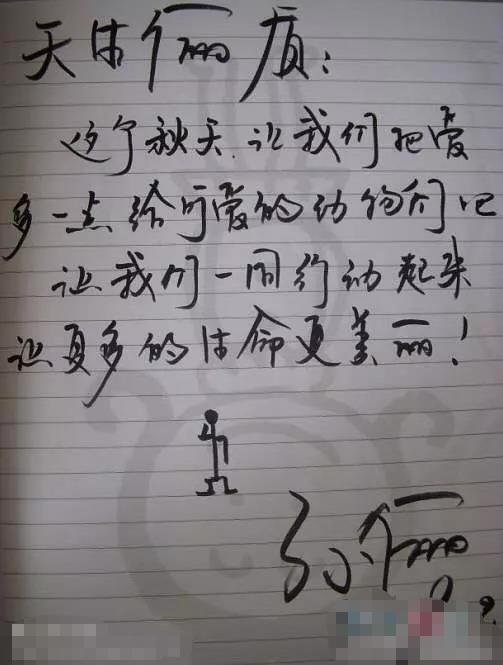 天生俪质：
这个秋天.让我们把爱
多一点给可爱的动物们吧
让我们一同行动起来
让更多的生命更美丽！
孙俪